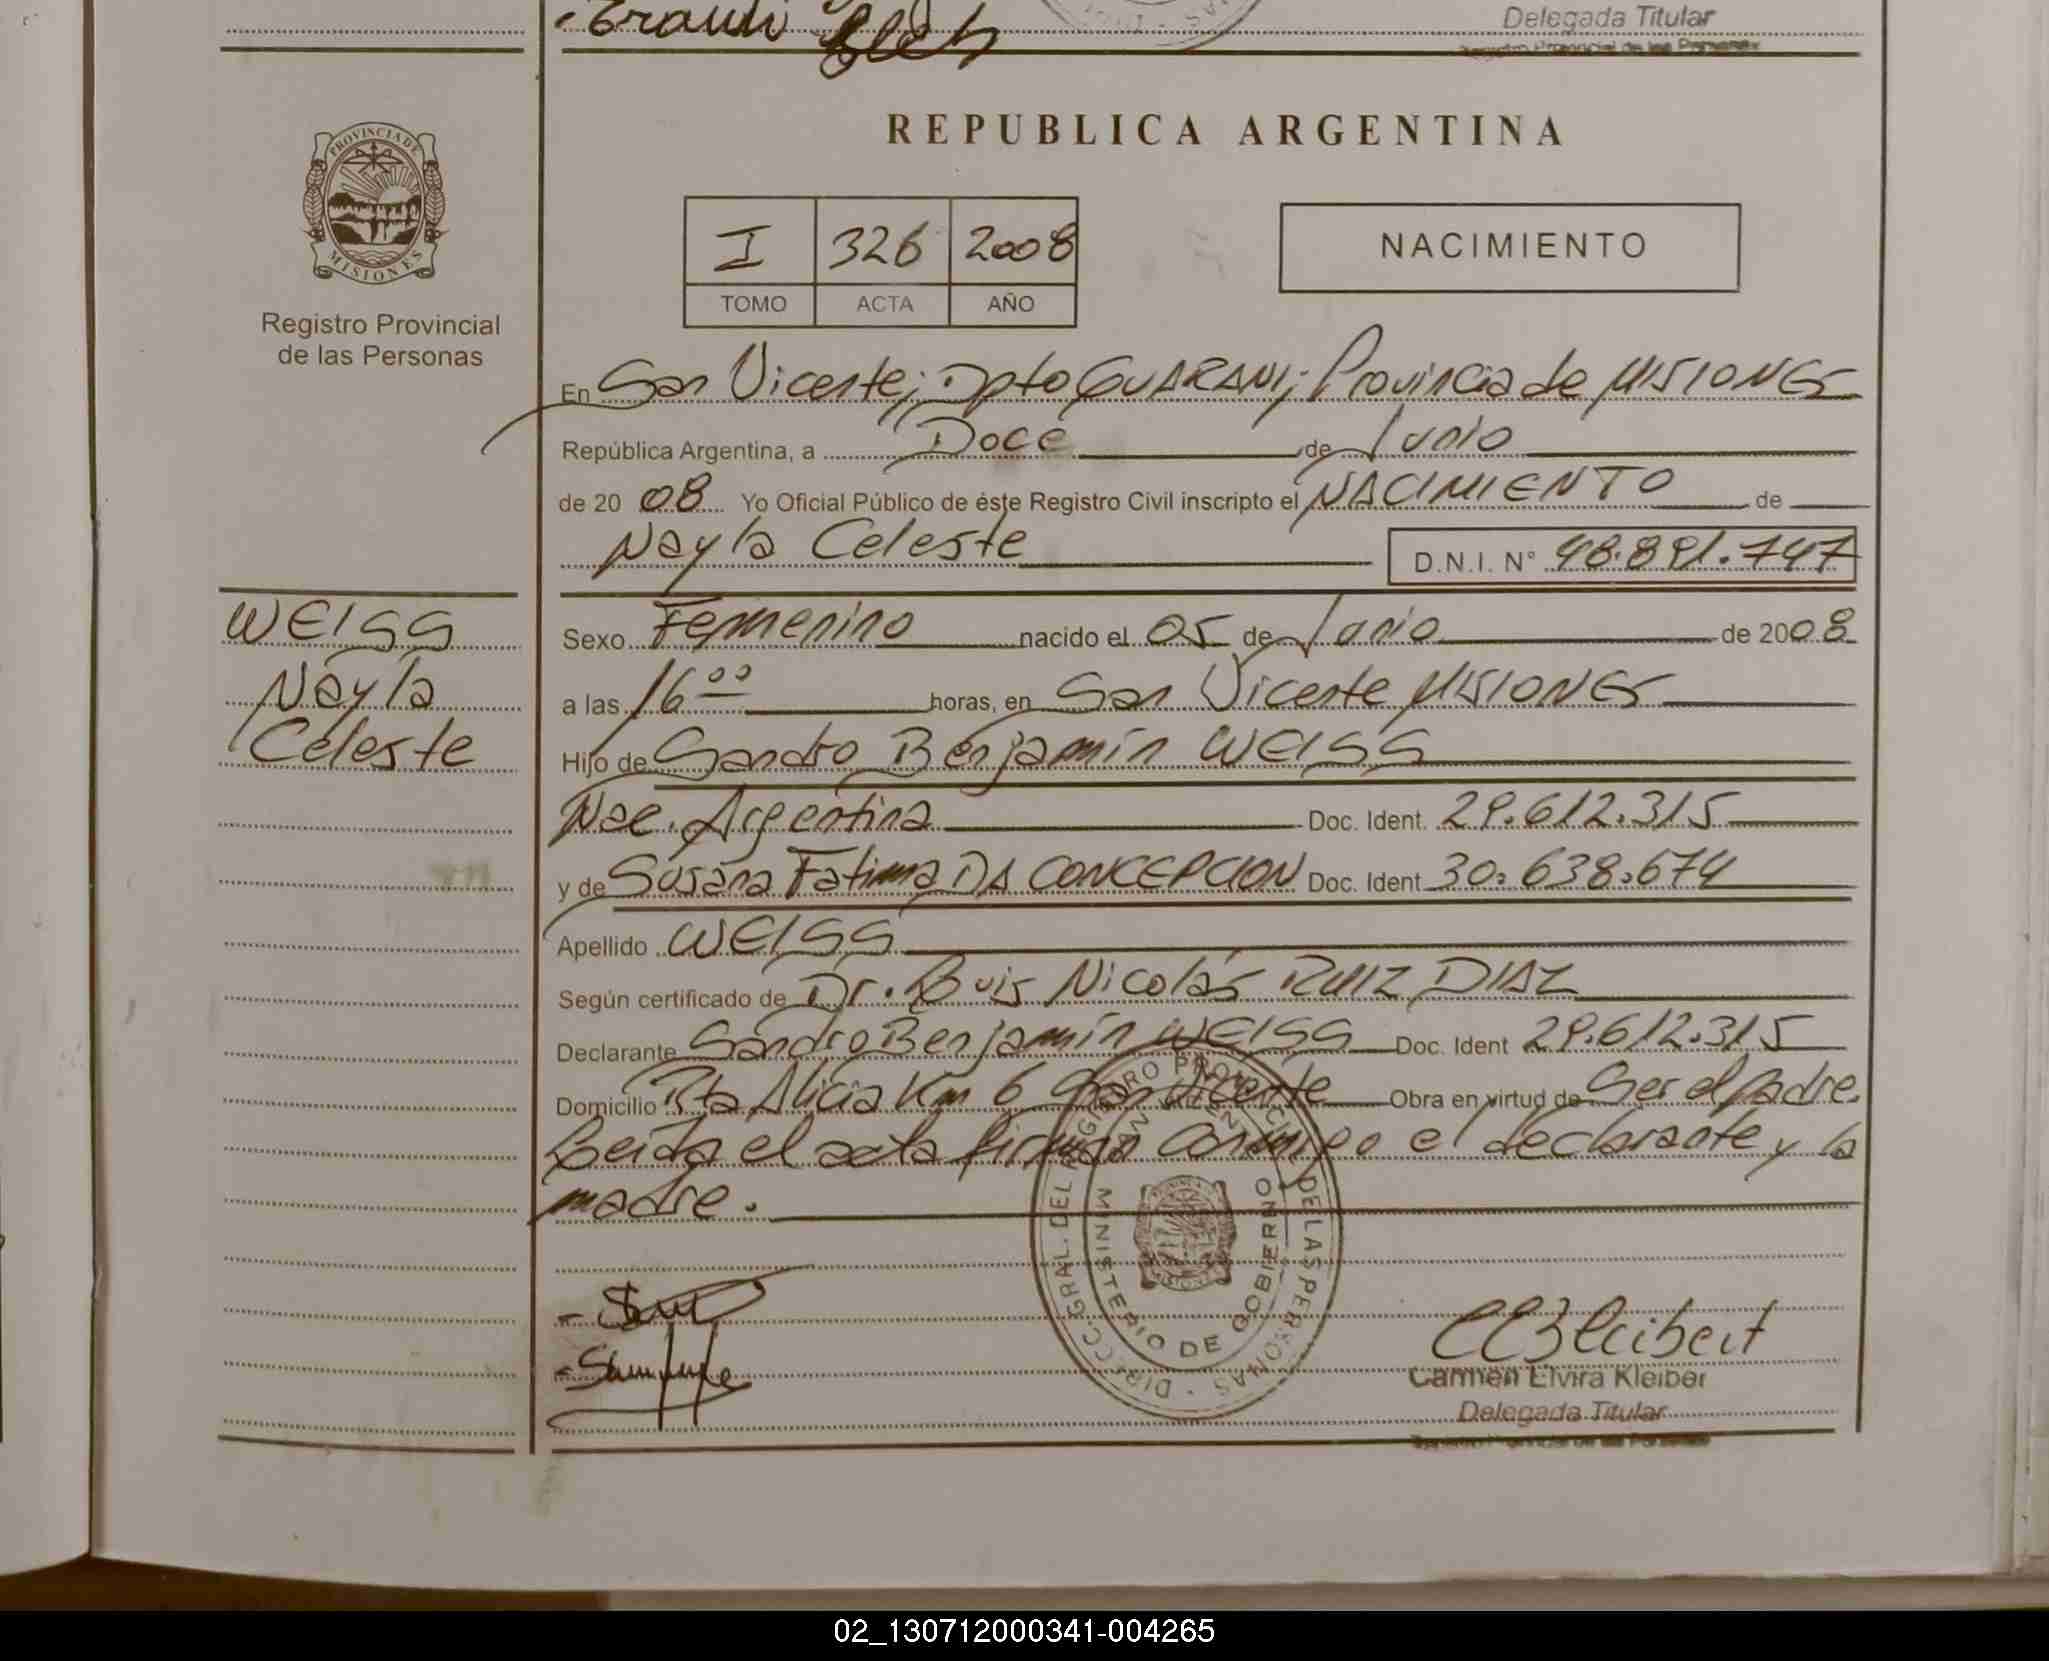 Delegada Titular
Registro Provincial de las Personas
PROVINCIA DE
MISIONES
Registro Provincial
de las Personas
REPUBLICA ARGENTINA
I 326 2008
TOMO ACTA AÑO
NACIMIENTO
En San Vicente; Dpto GUARANI; Provincia de MISIONES
República Argentina, a Doce de Junio
de 20 08 Yo Oficial Público de éste Registro Civil inscripto el NACIMIENTO de
Nayla Celeste D.N.I. N° 48.891.747
WEISS
Nayla
Celeste
Sexo Femenino nacido el 05 de Junio de 2008
a las 16 00 horas, en San Vicente MISIONES
Hijo de Sandro Benjamín WEISS
Nac. Argentina Doc. Ident. 29.612.315
y de Susana Fatima DA CONCEPCION Doc. Ident 30.638.674
Apellido WEISS
Según certificado de Dr. Luis Nicolás RUIZ DIAZ
Declarante Sandro Benjamín WEISS Doc. Ident 29.612.315
Domicilio Rta Alicia Km 6 San Vicente Obra en virtud de Ser el padre.
Leida el acta firman conmigo el declarante y la
madre.
DIRECC. GRAL. DEL REGISTRO PROVINCIAL DE LAS PERSONAS
MINISTERIO DE GOBIERNO
Carmen Elvira Kleiber
Delegada Titular
Registro Provincial de las Personas
02_130712000341-004265